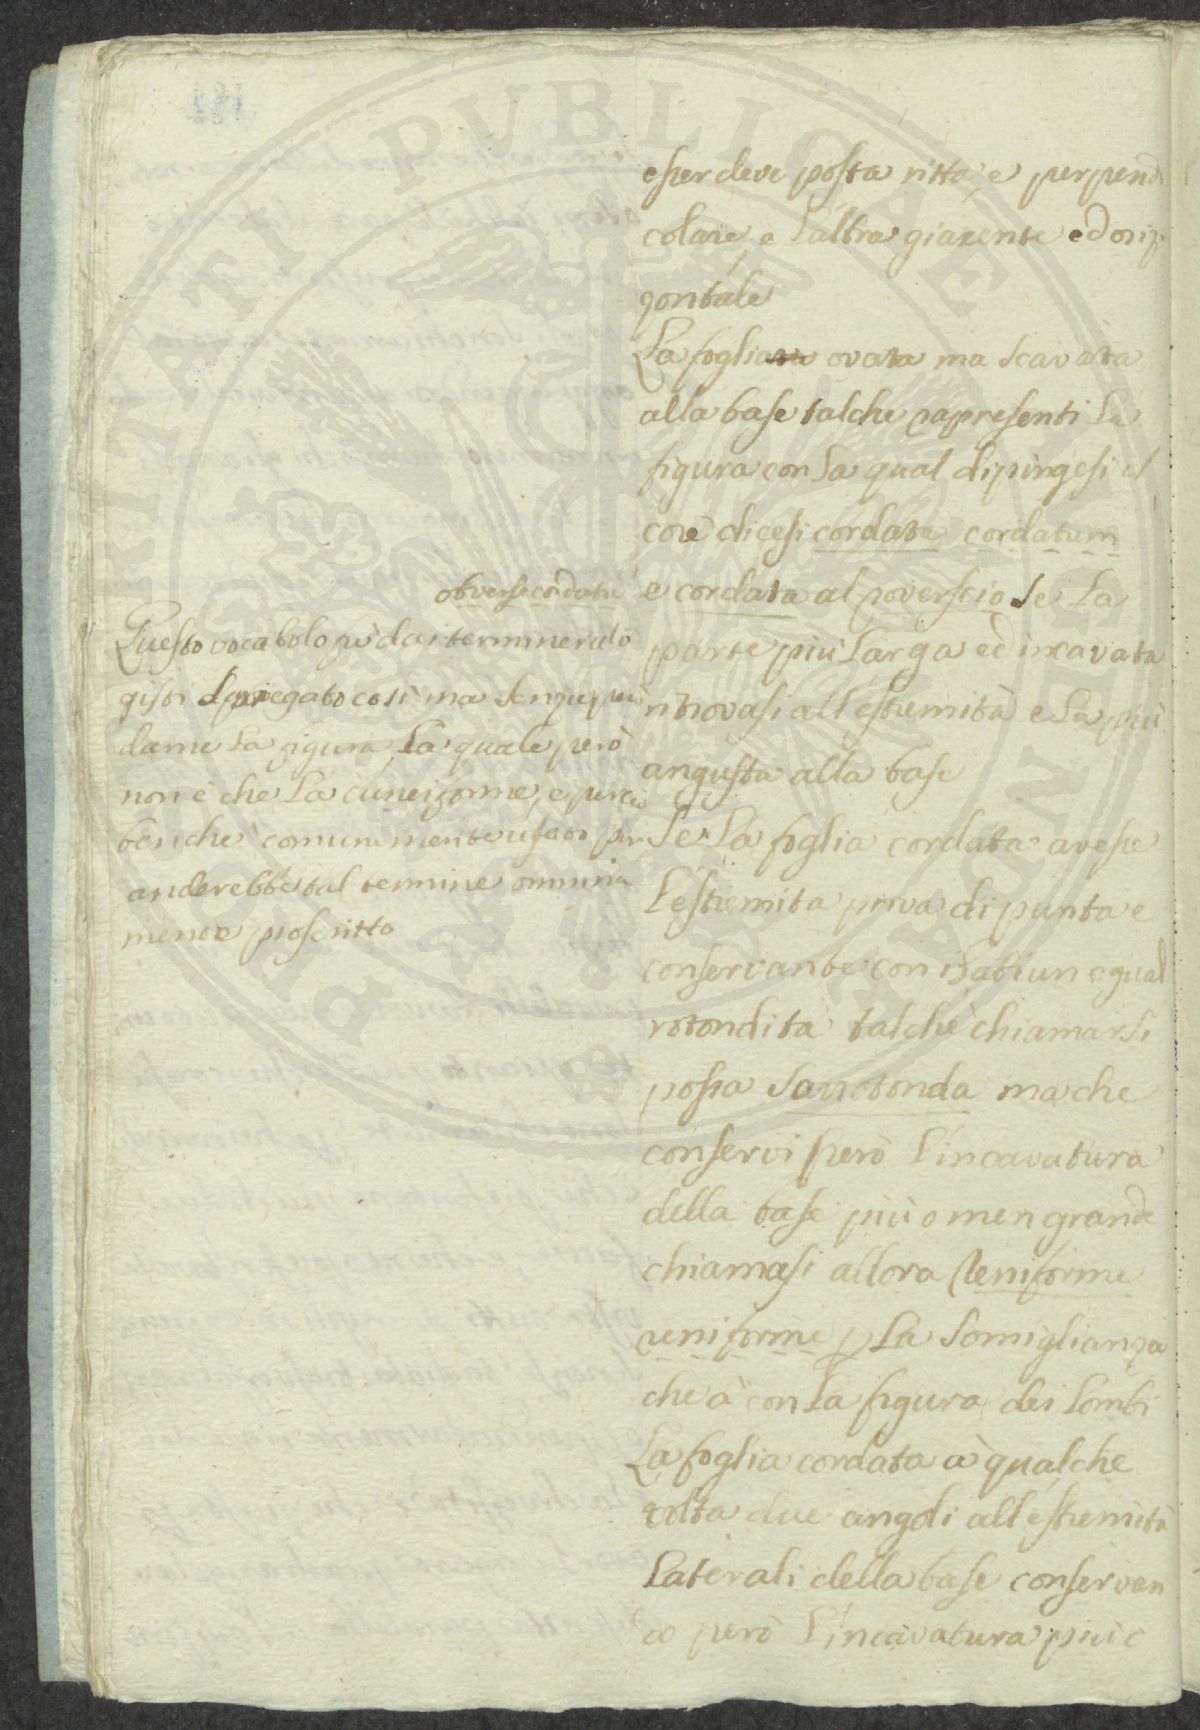 esser deve posta ritta, e perpendi
colare, e l'altra giacente ed oriz
zontale
La foglia ovata ma scavata
alla base talche rapresenti la
figura con la qual dipingesi il
core dicesi cordata cordatum
e cordata al roverscio se la
parte più larga ed incavata
ritrovasi all'estremità e la più
angusta alla base
Se la foglia cordata avesse
l'estremita priva di punta e
conservante con i lati un egual
rotondità talche chiamarsi
possa la rotonda ma che
conservi però l'incavatura
della base più o men grande
chiamasi allora Reniforme
reniforme p la somiglianza
che à con la figura dei lombi
La foglia cordata à qualche
volta due angoli all'estremità
laterali della base conservan
do però l'incavatura più e
obverse cordatu
Questo vocabolo fù dai termineralo
gisti spiegato così ma senza
darne la figura la quale però
non è che la cuneiforme, e percio
benche comunemente usato
anderebbe tal termine omnina
mente proscritto
PUBLICAE